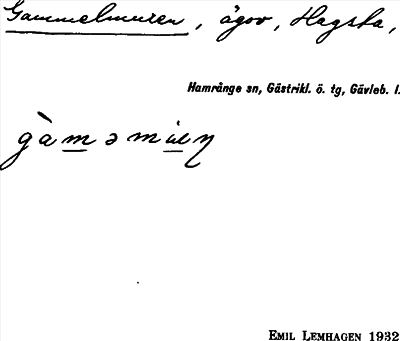 Gammelmuren, ägov, Hagsta,
Hamrånge sn, Gästrikl. ö. tg, Gävleb. l.
EMIL LEMHAGEN 1932